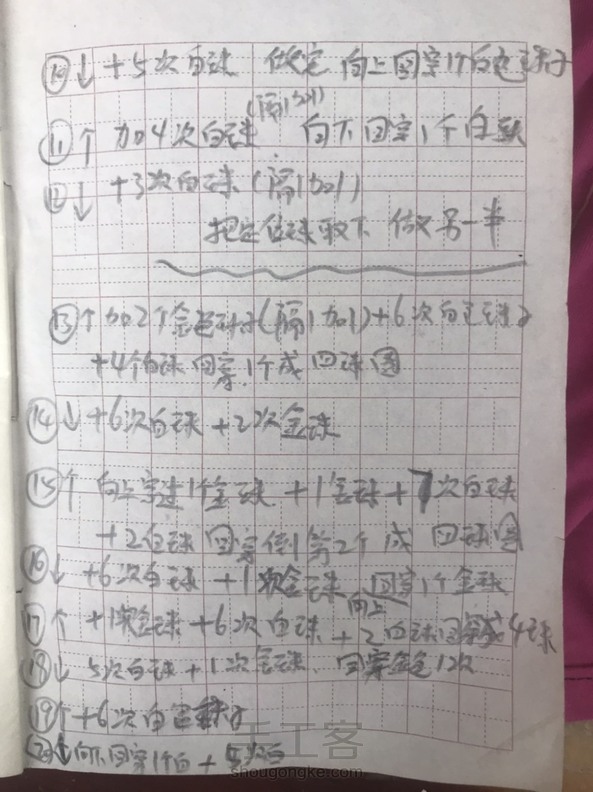 ⑩↓ +5次白球 做完 向上回穿1个白色珠子
(隔1加1)
⑪↑ 加4次白球 向下回穿1个白球
⑫↓ +3次白球(隔1加1)
把定位珠取下 做另一半
⑬↑加2个金色珠子(隔1加1)+6次白色珠子
+4个白球回穿1个成四珠圆
⑭↓+6次白球+2次金球
⑮↑ 向上穿过1个金球+1金球+7次白球
+2白球回穿倒第2个成 四球圆
⑯↓+6次白球+1次金球 回穿1个金球
向上
⑰↑+1次金球+6次白球+2白球回穿成4球
⑱↓5次白球+1次金球 回穿金色1次
⑲↑+6次白色珠子
⑳↓向下回穿1个白+5次白
手工客
shougongke.com